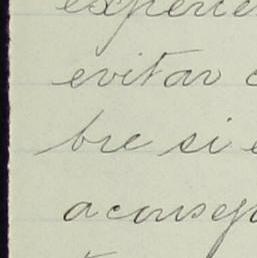 experie
evitar c
bre si e
aconsej